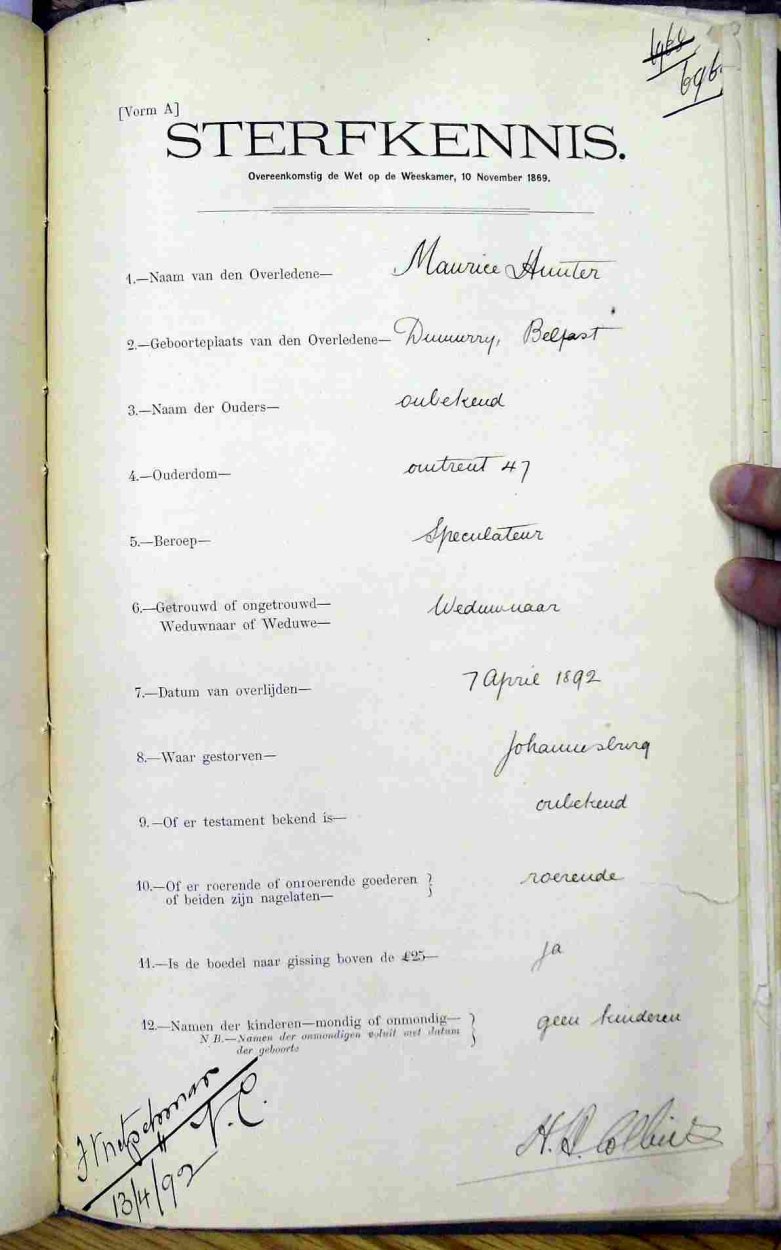 696
[Vorm A]
STERFKENNIS.
Overeenkomstig de Wet op de Weeskamer, 10 November 1869.
1.—Naam van den Overledene— Maurice Hunter
2.—Geboorteplaats van den Overledene— Dunmurry, Belfast
3.—Naam der Ouders— onbekend
4.—Ouderdom— omtrent 47
5.—Beroep— Speculateur
6.—Getrouwd of ongetrouwd—
Weduwnaar of Weduwe— Weduwnaar
7.—Datum van overlijden— 7 April 1892
8.—Waar gestorven— Johannesburg
9.—Of er testament bekend is— onbekend
10.—Of er roerende of onroerende goederen
of beiden zijn nagelaten— roerende
11.—Is de boedel naar gissing boven de £25— Ja
12.—Namen der kinderen—mondig of onmondig— geen kinderen
N B.—Namen der onmondigen voluit met datum
der geboorte
13/4/92
H.